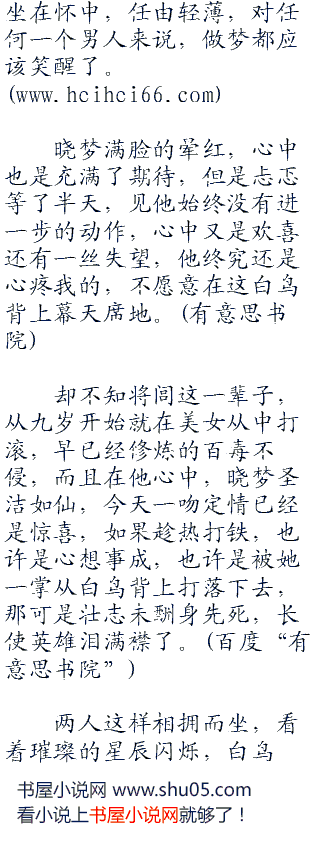 坐在怀中，任由轻薄，对任
何一个男人来说，做梦都应
该笑醒了。
(www.hcihci66.com)
晓梦满脸的晕红，心中
也是充满了期待，但是忐忑
等了半天，见他始终没有进
一步的动作，心中又是欢喜
还有一丝失望，他终究还是
心疼我的，不愿意在这白鸟
背上幕天席地。(有意思书
院)
却不知将闾这一辈子，
从九岁开始就在美女从中打
滚，早已经修炼的百毒不
侵，而且在他心中，晓梦圣
洁如仙，今天一吻定情已经
是惊喜，如果趁热打铁，也
许是心想事成，也许是被她
一掌从白鸟背上打落下去，
那可是壮志未酬身先死，长
使英雄泪满襟了。(百度“有
意思书院”)
两人这样相拥而坐，看
着璀璨的星辰闪烁，白鸟
书屋小说网 www.shu05.com
看小说上书屋小说网就够了！